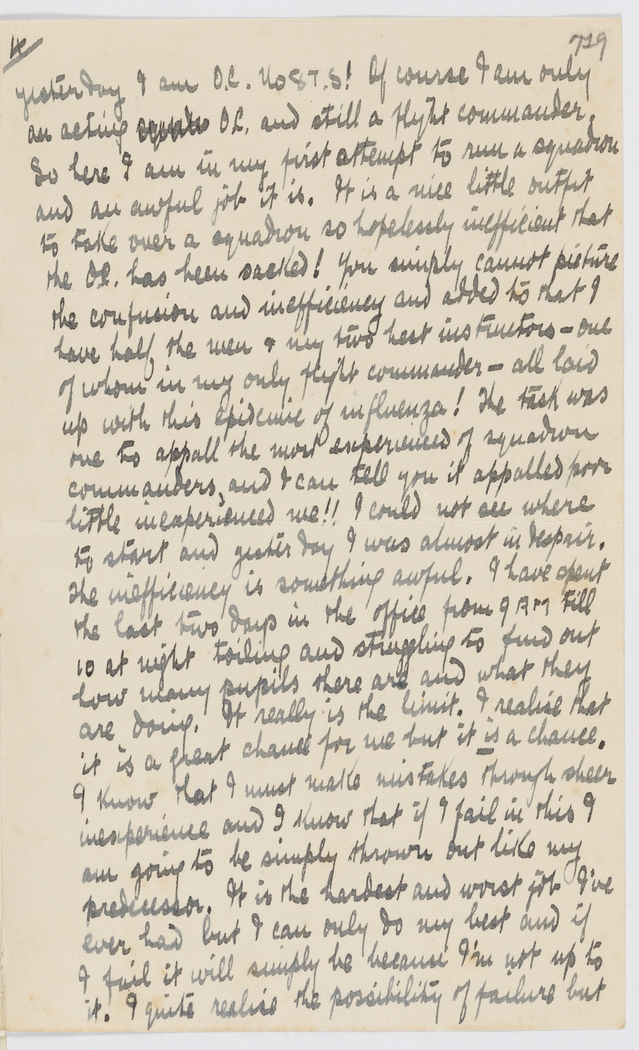 4
719
yesterday I am O.C. No 8 T.S! Of course I am only
an acting O.C. and still a flight commander.
So here I am in my first attempt to run a squadron
and an awful job it is. It is a nice little outfit
to take over a squadron so hopelessly inefficient that
the O.C. has been sacked! You simply cannot picture
the confusion and inefficiency and added to that I
have half the men & my two best instructors – one
of whom in my only flight commander – all laid
up with this epidemic of influenza! The task was
one to appall the most experienced of squadron
commanders, and I can tell you it appalled poor
little inexperienced me!! I could not see where
to start and yesterday I was almost in despair.
The inefficiency is something awful. I have spent
the last two days in the office from 9 AM till
10 at night toiling and struggling to find out
how many pupils there are and what they
are doing. It really is the limit. I realise that
it is a great chance for me but it is a chance.
I know that I must make mistakes through sheer
inexperience and I know that if I fail in this I
am going to be simply thrown out like my
predecessor. It is the hardest and worst job I've
ever had but I can only do my best and if
I fail it will simply be because I'm not up to
it. I quite realise the possibility of failure but